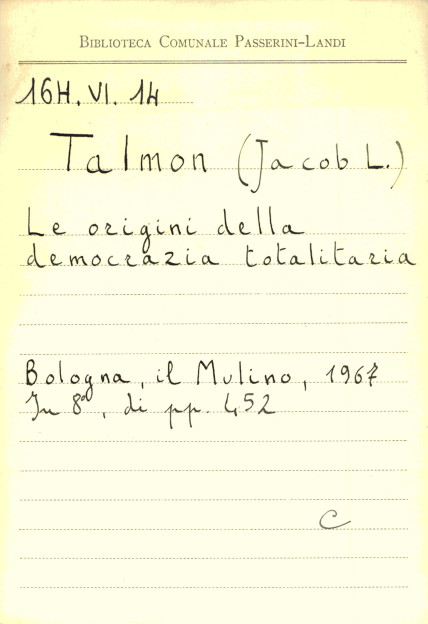 BIBLIOTECA COMUNALE PASSERINI-LANDI
16H. VI. 14
Talmon (Jacob L.)
Le origini della
democrazia totalitaria
Bologna, il Mulino, 1967
In 8º, di pp. 452
C